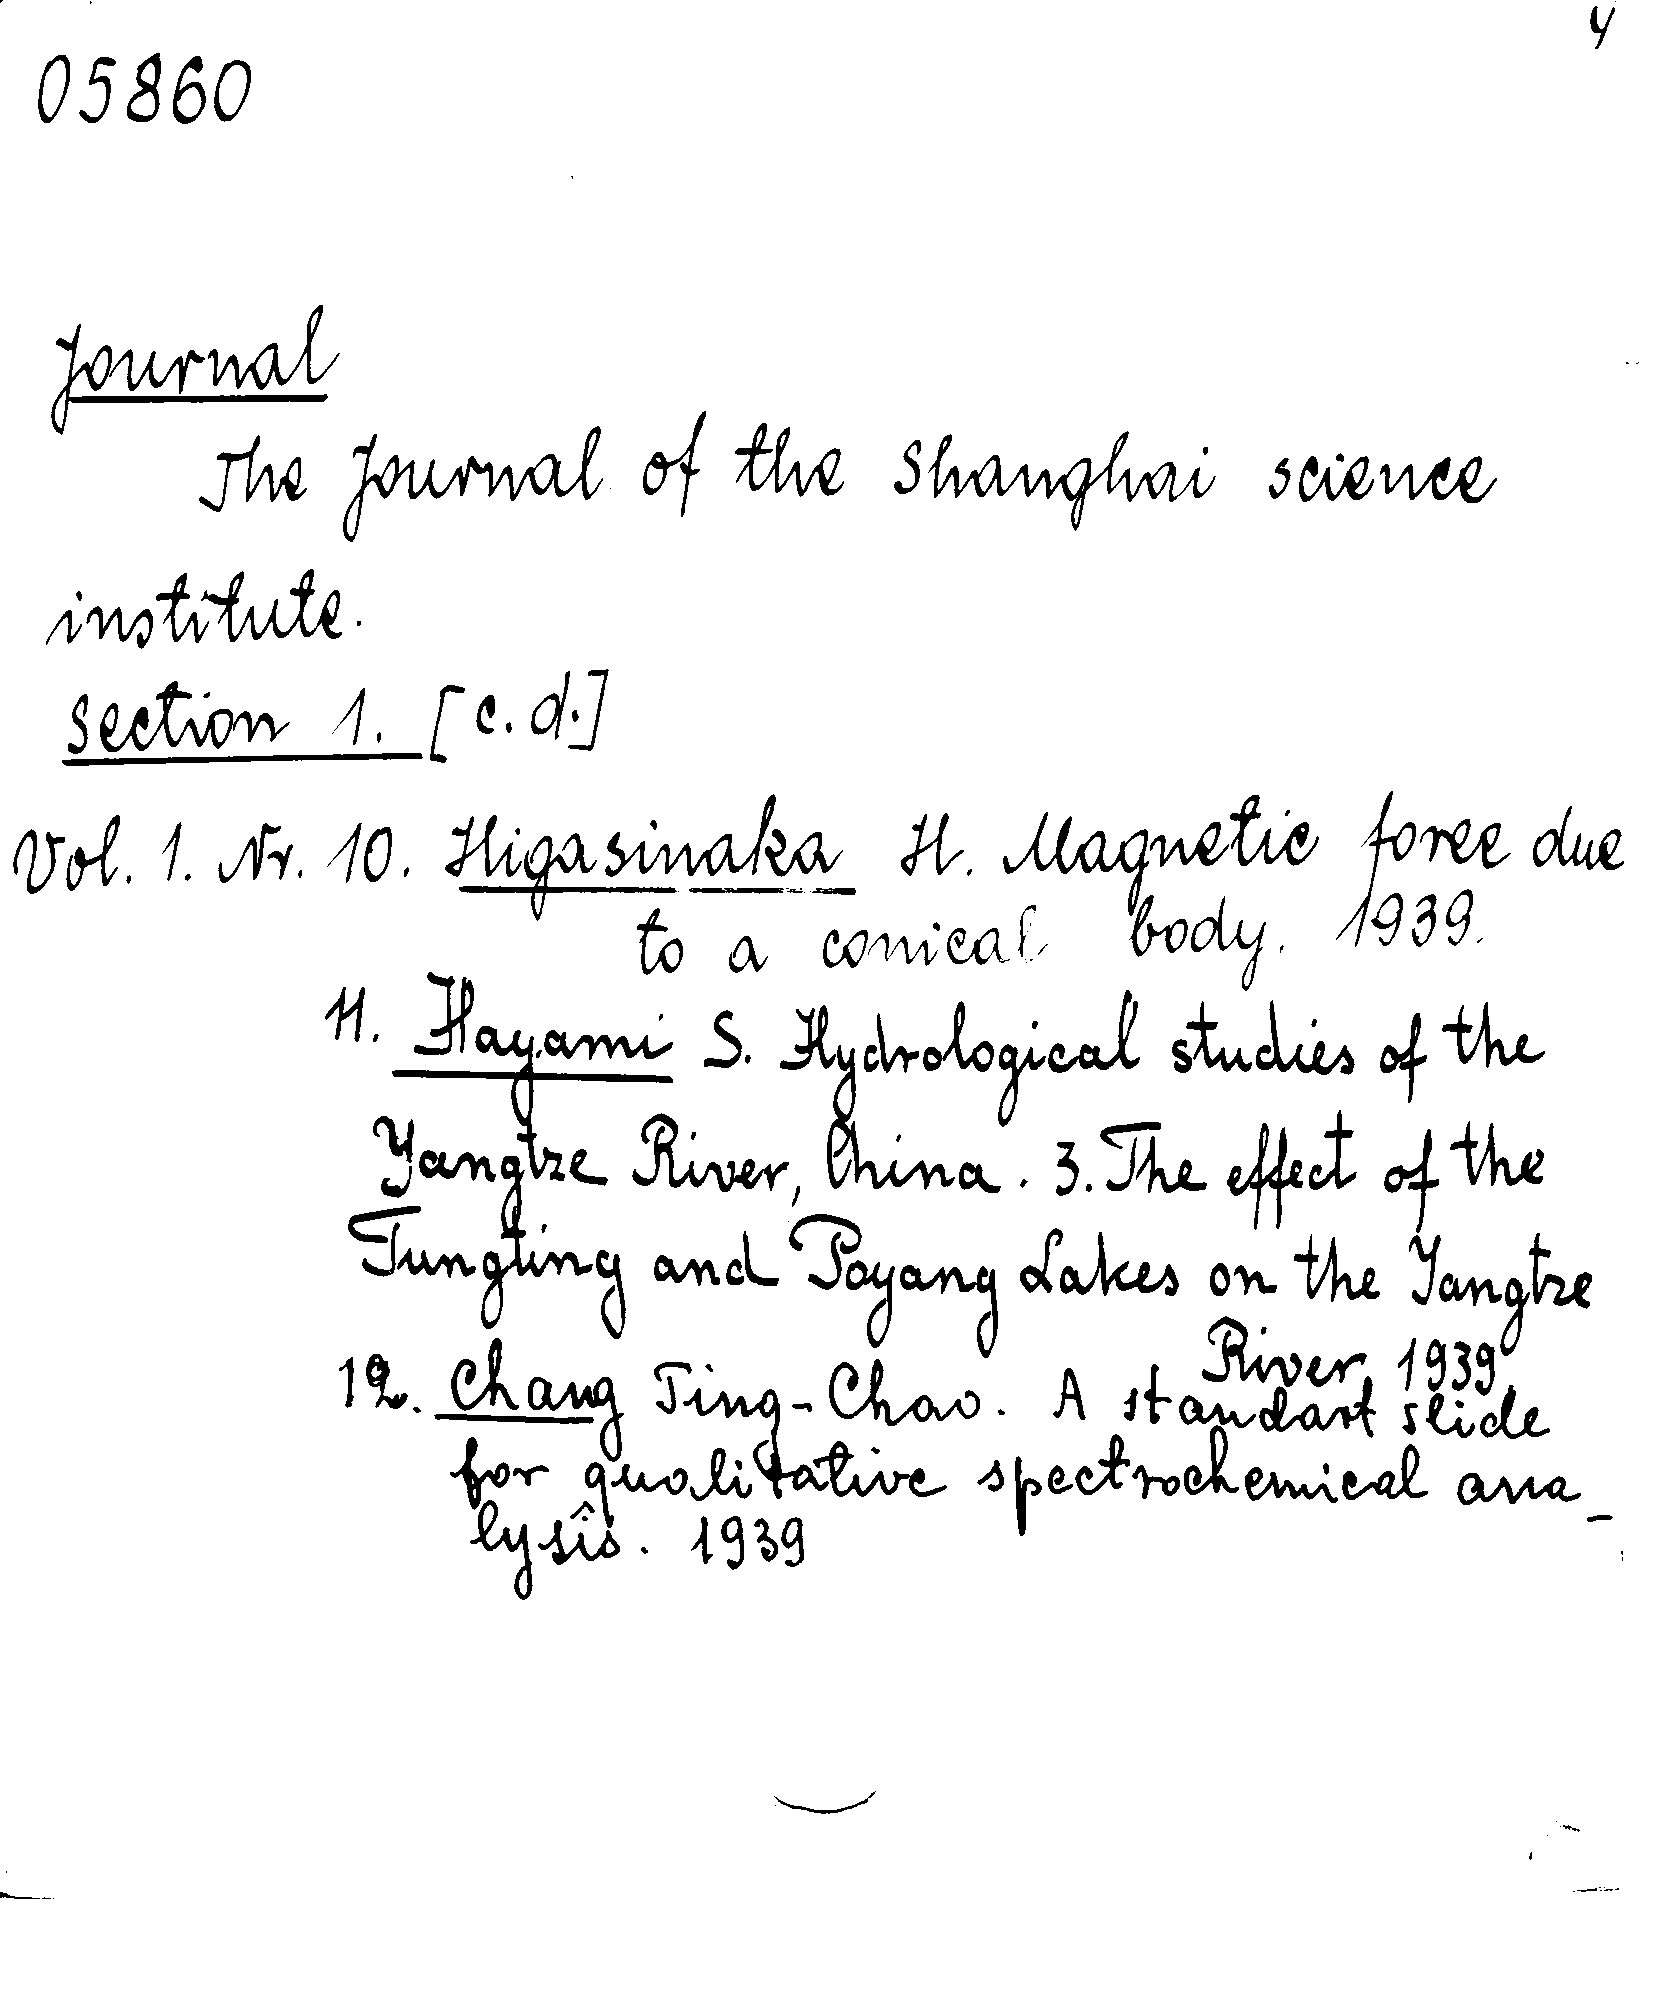 4
05860
Journal
The Journal of the Shanghai science
institute.
Section 1. [c.d.]
Vol. 1. Nr. 10. Higasinaka H. Magnetic force due
to a conical body. 1939.
11. Hayami S. Hydrological studies of the
Yangtze River, China. 3. The effect of the
Tungting and Poyang Lakes on the Yangtze
River 1939
12. Chang Ting-Chao. A standart slide
for qualitative spectrochemical ana-
lysis. 1939